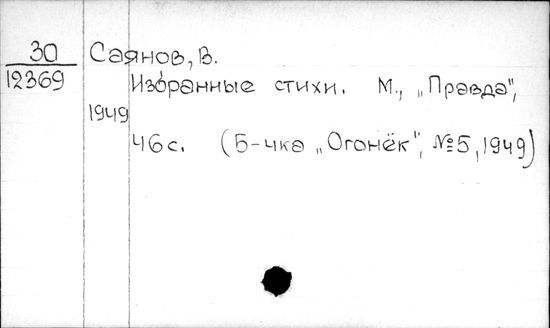 30 Саянов, В.
12369 Избранные стихи. М., „Правда",
1949
46 с. (Б-чка „Огонёк", №5, 1949)